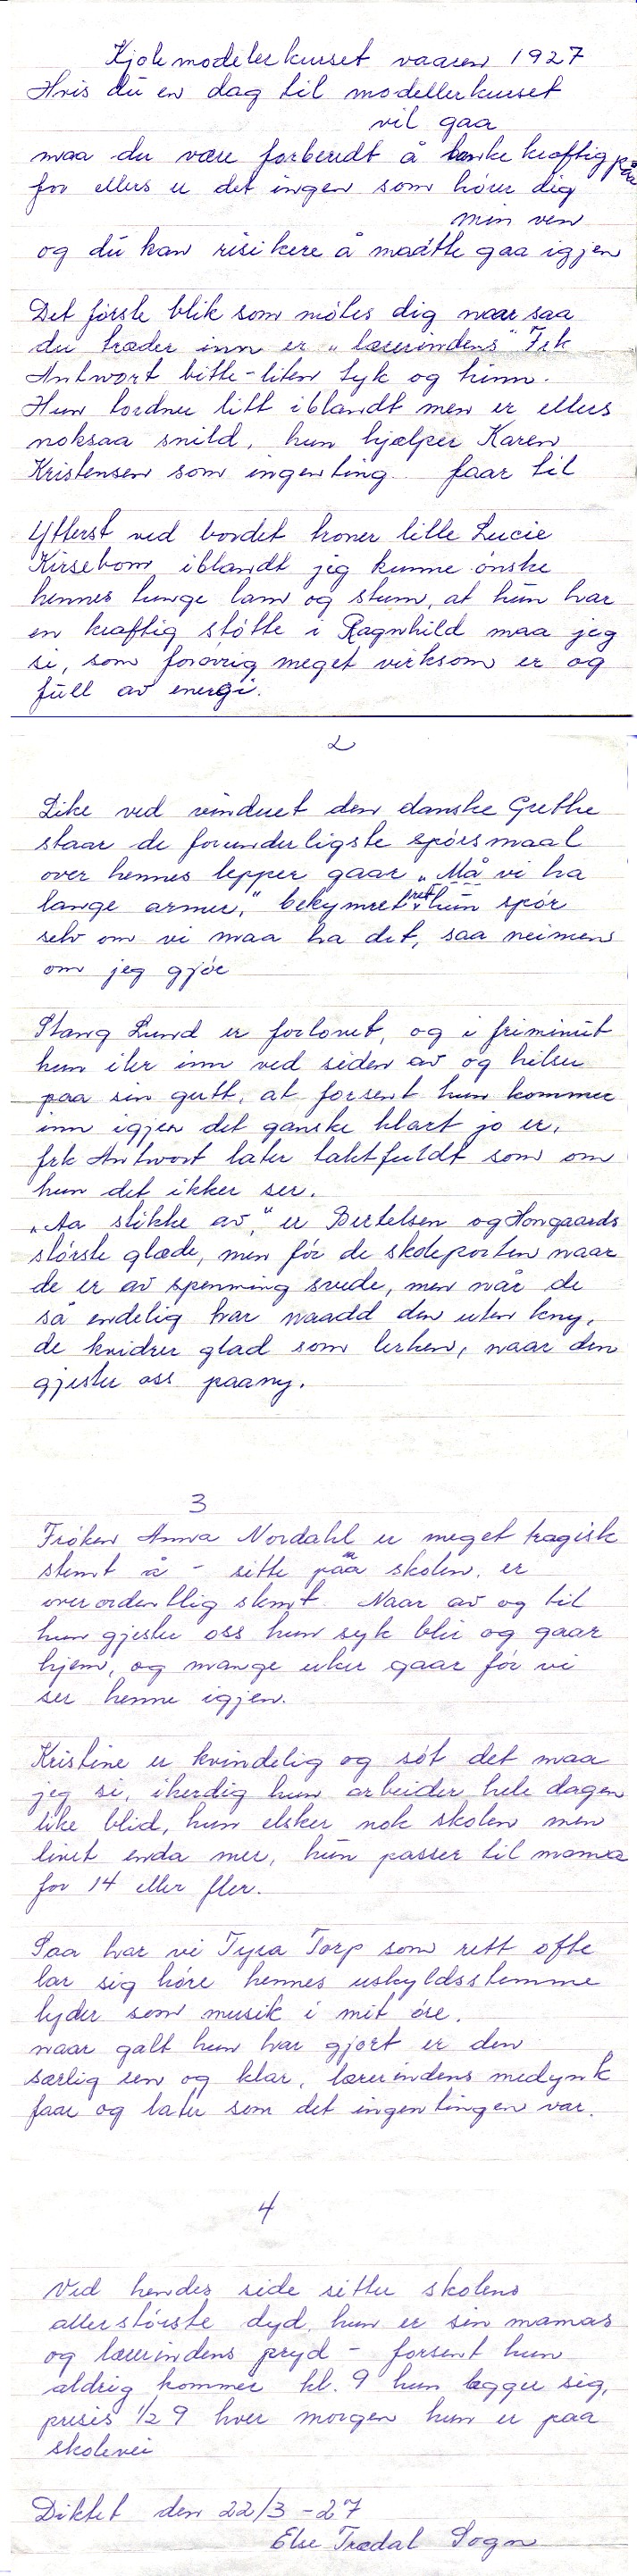 Kjolemodelerkurset vaaren 1927
Hvis du en dag til modellerkurset
vil gaa
maa du være forberedt å banke kraftig på
for ellers er det ingen som hører dig
min ven
og du kan risikere å maatte gaa igjen
Det første blik som møtes dig naar saa
du træder inn er „ lærerindens" Frk
Antwort bitte-liten tyk og trinn.
Hun tordner litt iblandt men er ellers
noksaa snild, hun hjælper Karen
Kristensen som ingenting faar til
Ytterst ved bordet troner lille Lucie
Kirsebom, iblandt jeg kunne ønske
hennes tunge lam og stum, at hun har
en kraftig støtte i Ragnhild maa jeg
si, som forøvrig meget virksom er og
full av energi.
2
Like ved vinduet den danske Grethe
staar de forunderligste spørsmaal
over hennes lepper gaar „Må vi ha
lange armer," bekymret rett hun spør
selv om vi maa ha det, saa neimen
om jeg gjør
Stang Lund er forlovet, og i friminut
hun iler inn ved siden av og hilser
paa sin gutt, at forsent hun kommer
inn igjen det ganske klart jo er,
frk Antwort later taktfuldt som om
hun det ikker ser.
„Aa stikke av," er Bertelsen og Hongaards
største glæde, men før de skoleporten naar
de er av spenning svede, men når de
så endelig har naadd den uten kny,
de kvidrer glad som lerken, naar den
gjester oss paany.
3
Frøken Anna Nordahl er meget tragisk
stemt å - sitte på skolen, er
overordentlig slemt. Naar av og til
hun gjester oss hun syk blir og gaar
hjem, og mange uker gaar før vi
ser henne igjen.
Kristine er kvindelig og søt det maa
jeg si, iherdig hun arbeider hele dagen
like blid, hun elsker nok skolen men
livet enda mer, hun passer til mama
for 14 eller fler.
Saa har vi Tyra Torp som rett ofte
lar sig høre hennes uskyldsstemme
lyder som musik i mit øre.
naar galt hun har gjort er den
særlig ren og klar, lærerindens medynk
faar og later som det ingentingen var.
4
Ved hendes side sitter skolens
allerstørste dyd, hun er sin mamas
og lærerindens pryd - forsent hun
aldrig kommer kl. 9 hun legger sig,
presis 1/2 9 hver morgen hun er paa
skolevei
Diktet den 22/3 - 27
Else Trædal Sogn